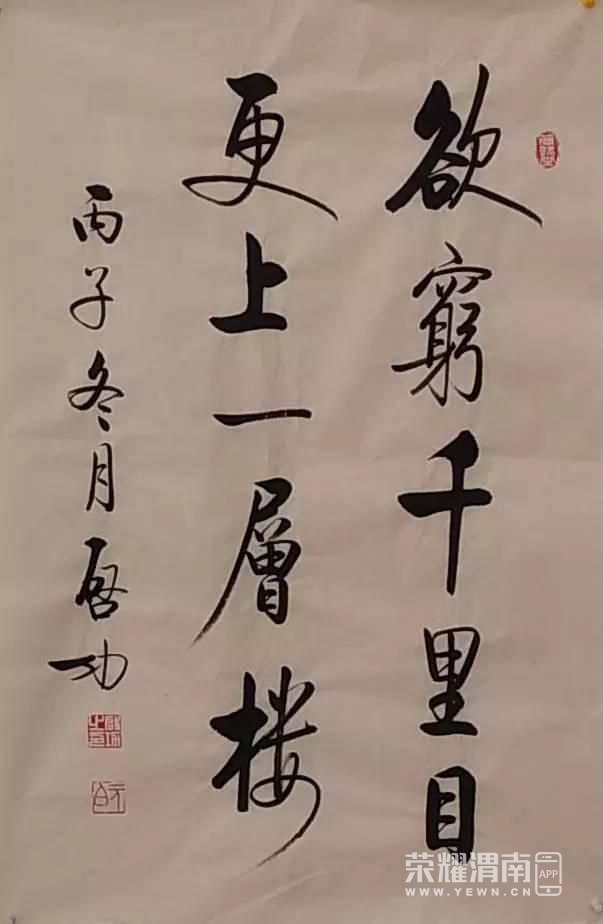 欲窮千里目
更上一層楼
丙子冬月启功
荣耀渭南 APP
WWW.YEWN.CN